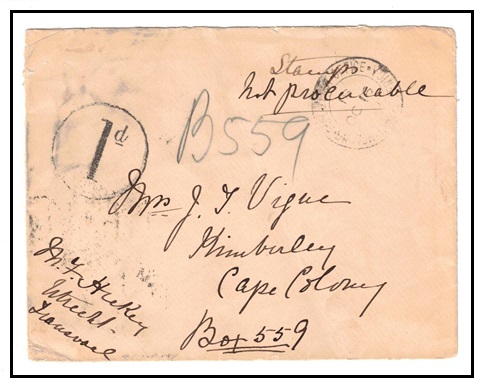 Stamps
Not procurable
B559
1d
Mrs J. T. Vigne
Kimberley
Cape Colony
Box 559
Utrecht
Transvaal